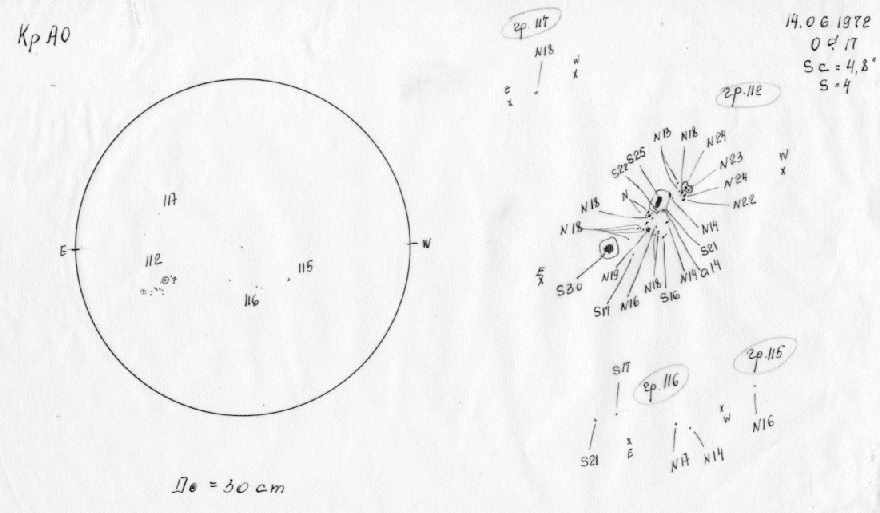 КрАО
14.06.1972
Sc = 4,8"
S = 4
гр. 117
N18
W
x
E
x
гр. 112
N13 N18 N24
S22 S25
N23
N24
N22
N
N18
N18
W
x
N14
S21
E
x
S30
N19
S17 N16 N18 S16 N14 G14
117
E
W
112
115
116
S17
гр. 116
гр. 115
x
W
x
E
N16
S21
N17 N14
D⊙ = 30 cm